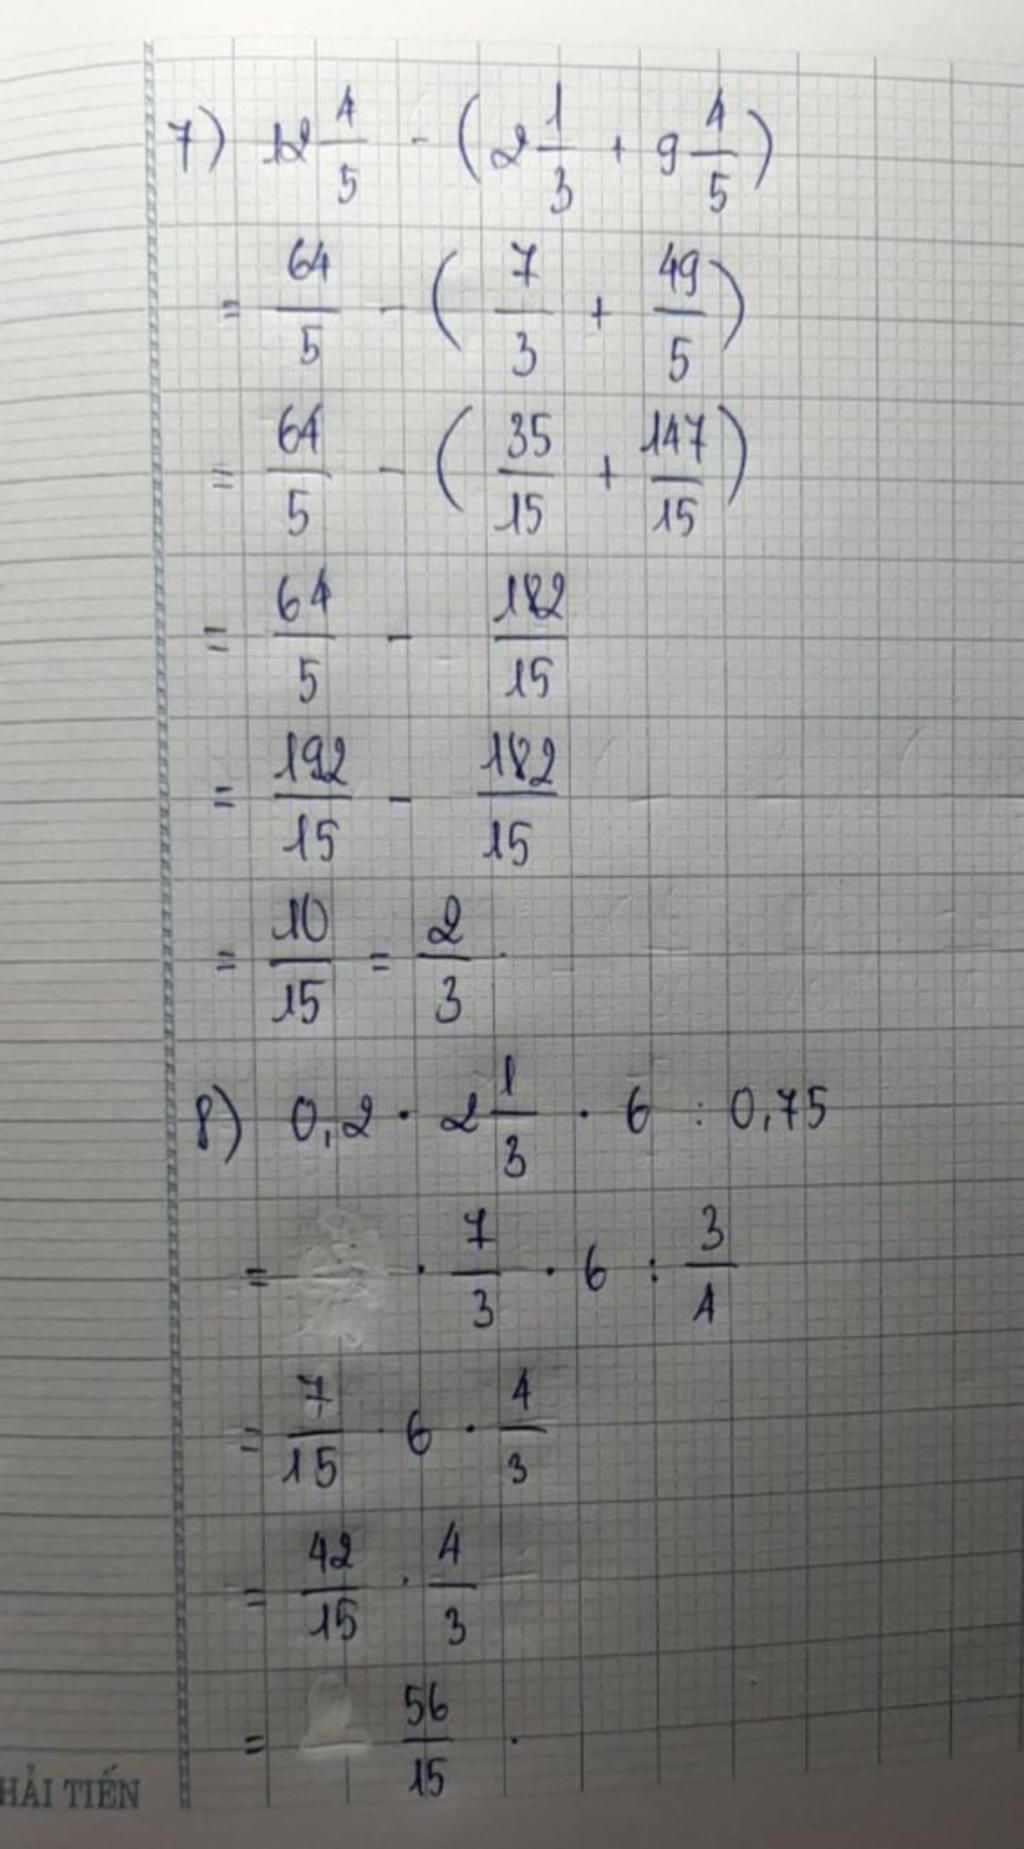 7) 12 4/5 - (2 1/3 + 9 4/5)
= 64/5 - (7/3 + 49/5)
= 64/5 - (35/15 + 147/15)
= 64/5 - 182/15
= 192/15 - 182/15
= 10/15 = 2/3.
8) 0,2 . 2 1/3 . 6 : 0,75
= . 7/3 . 6 : 3/4
= 7/15 . 6 . 4/3
= 42/15 . 4/3
= 56/15 .
HẢI TIẾN